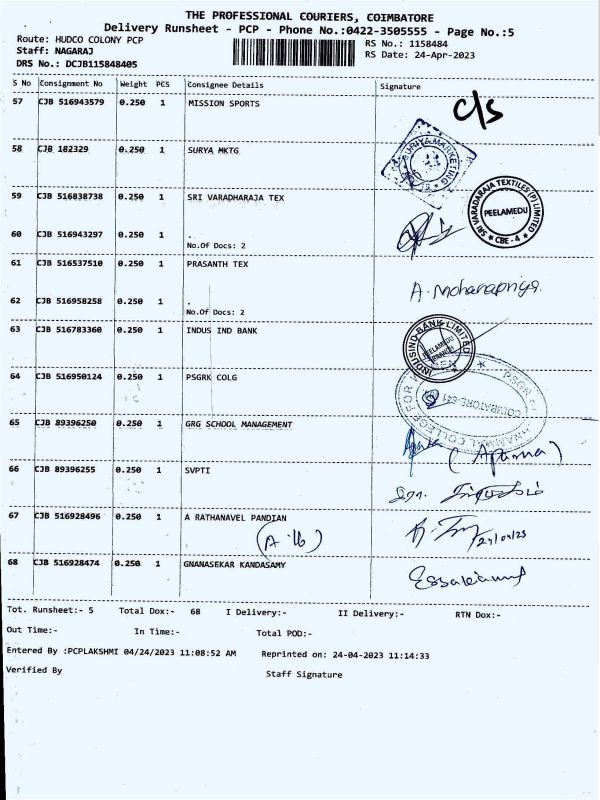 THE PROFESSIONAL COURIERS, COIMBATORE
Delivery Runsheet - PCP - Phone No.:0422-3505555 - Page No.:5
Route: HUDCO COLONY PCP RS No.: 1158484
Staff: NAGARAJ RS Date: 24-Apr-2023
DRS No.: DCJB115848405
S No Consignment No Weight PCS Consignee Details Signature
57 CJB 516943579 0.250 1 MISSION SPORTS c/s
58 CJB 182329 0.250 1 SURYA MKTG
SURIYA MARKETING
59 CJB 516838738 0.250 1 SRI VARADHARAJA TEX
SRI VARADARAJA TEXTILES (P) LIMITED
PEELAMEDU
* CBE - 4 *
60 CJB 516943297 0.250 1 .
No.Of Docs: 2
61 CJB 516537510 0.250 1 PRASANTH TEX
A. Mohanapriya.
62 CJB 516958258 0.250 1 .
No.Of Docs: 2
63 CJB 516783360 0.250 1 INDUS IND BANK
INDUSIND BANK LIMITED
PEELAMEDU
BRANCH
64 CJB 516950124 0.250 1 PSGRK COLG
COIMBATORE-641
65 CJB 89396250 0.250 1 GRG SCHOOL MANAGEMENT
(Aparna)
66 CJB 89396255 0.250 1 SVPTI
67 CJB 516928496 0.250 1 A RATHANAVEL PANDIAN
24/04/23
68 CJB 516928474 0.250 1 GNANASEKAR KANDASAMY
Tot. Runsheet:- 5 Total Dox:- 68 I Delivery:- II Delivery:- RTN Dox:-
Out Time:- In Time:- Total POD:-
Entered By :PCPLAKSHMI 04/24/2023 11:08:52 AM Reprinted on: 24-04-2023 11:14:33
Verified By Staff Signature